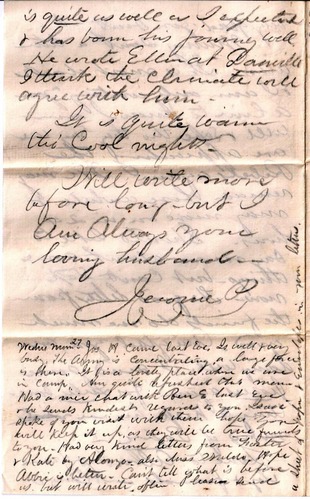 is quite as well as I expected
& has born his journey well
He wrote Ellen at Danville
I think the climate will
agree with him
It is quite warm
tho Cool nights.
Will write more
before long but I
Am Always your
loving husband
Jerome B
Wednes morn Jos came last Eve. Is well favor
The Army is Concentrating a large force
is there. It is a lovely place when we are
in camp. Am quite refreshed this morn
Had a nice chat with Ben last eve
he sends kindest regards to you
spoke of your visit with them hope
will keep it up, as they will be true friends
to you. Had kind letters from
& Kate also Miss Hope
Abbie is better. Can't tell what is before
us but will write often
a sheet of Envelopes in your letters.